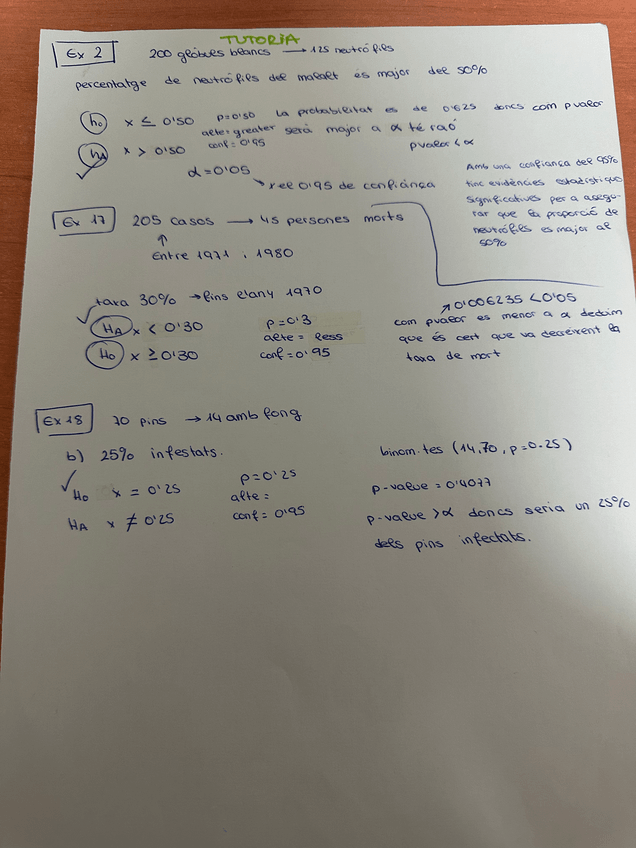 TUTORIA
Ex 2 200 glòbuls blancs → 125 neutròfils
percentatge de neutròfils del malalt és major del 50%
h₀ x ≤ 0'50 p=0'50 La probabilitat es de 0'625 doncs com pvalor
alte=greater serà major a α té raó
hA x > 0'50 conf=0'95 pvalor < α
α=0'05
→ x el 0'95 de confiança
Amb una confiança del 95%
tinc evidències estadístiques
significatives per a assegu-
rar que la proporció de
neutròfils es major al
50%
Ex 17 205 casos → 45 persones morts
↑
Entre 1971 i 1980
taxa 30% → fins l'any 1970
HA x < 0'30 p=0'3
alte= less
H₀ x ≥ 0'30 conf=0'95
↗ 0'006235 < 0'05
com pvalor es menor a α deduim
que és cert que va decreixent la
taxa de mort
Ex 18 70 pins → 14 amb fong
b) 25% infestats.
H₀ x = 0'25 p=0'25
alte=
HA x ≠ 0'25 conf=0'95
binom.tes (14,70, p=0.25)
p-value = 0'4077
p-value > α doncs seria un 25%
dels pins infectats.